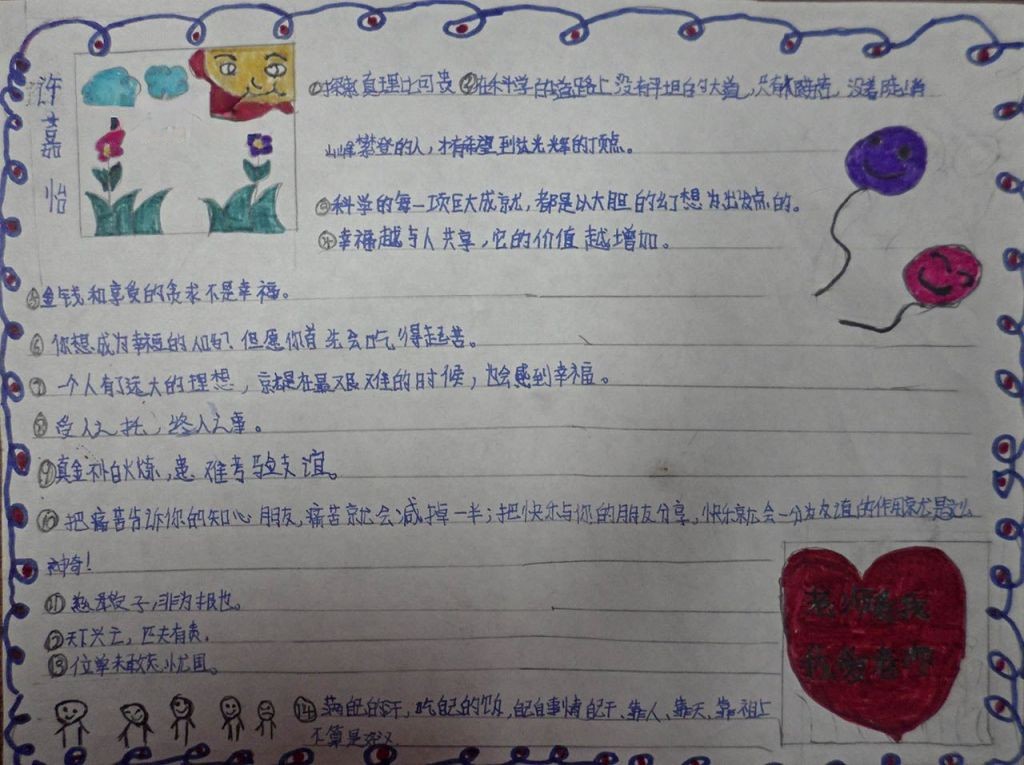 许嘉怡
①探索真理之可贵 ②在科学的道路上没有平坦的大道,只有不畏劳苦,沿着陡峭
山峰攀登的人,才有希望到达光辉的顶点。
③科学的每一项巨大成就,都是以大胆的幻想为出发点的。
④幸福越与人共享,它的价值越增加。
⑤金钱和享受的贪求不是幸福。
⑥你想成为幸福的人吗?但愿你首先会吃得起苦。
⑦一个人有了远大的理想,就是在最艰难的时候,也会感到幸福。
⑧受人之托,终人之事。
⑨真金不怕火炼,患难考验友谊。
⑩把痛苦告诉你的知心朋友,痛苦就会减掉一半;把快乐与你的朋友分享,快乐就会一分为友谊的作用就是这么
神奇!
⑪ 子,非为报也。
⑫天下兴亡,匹夫有责。
⑬位卑未敢忘忧国。
⑭靠自己的汗,吃自己的饭,自己事情自己干,靠人、靠天、靠祖上
不算是
老师
老师